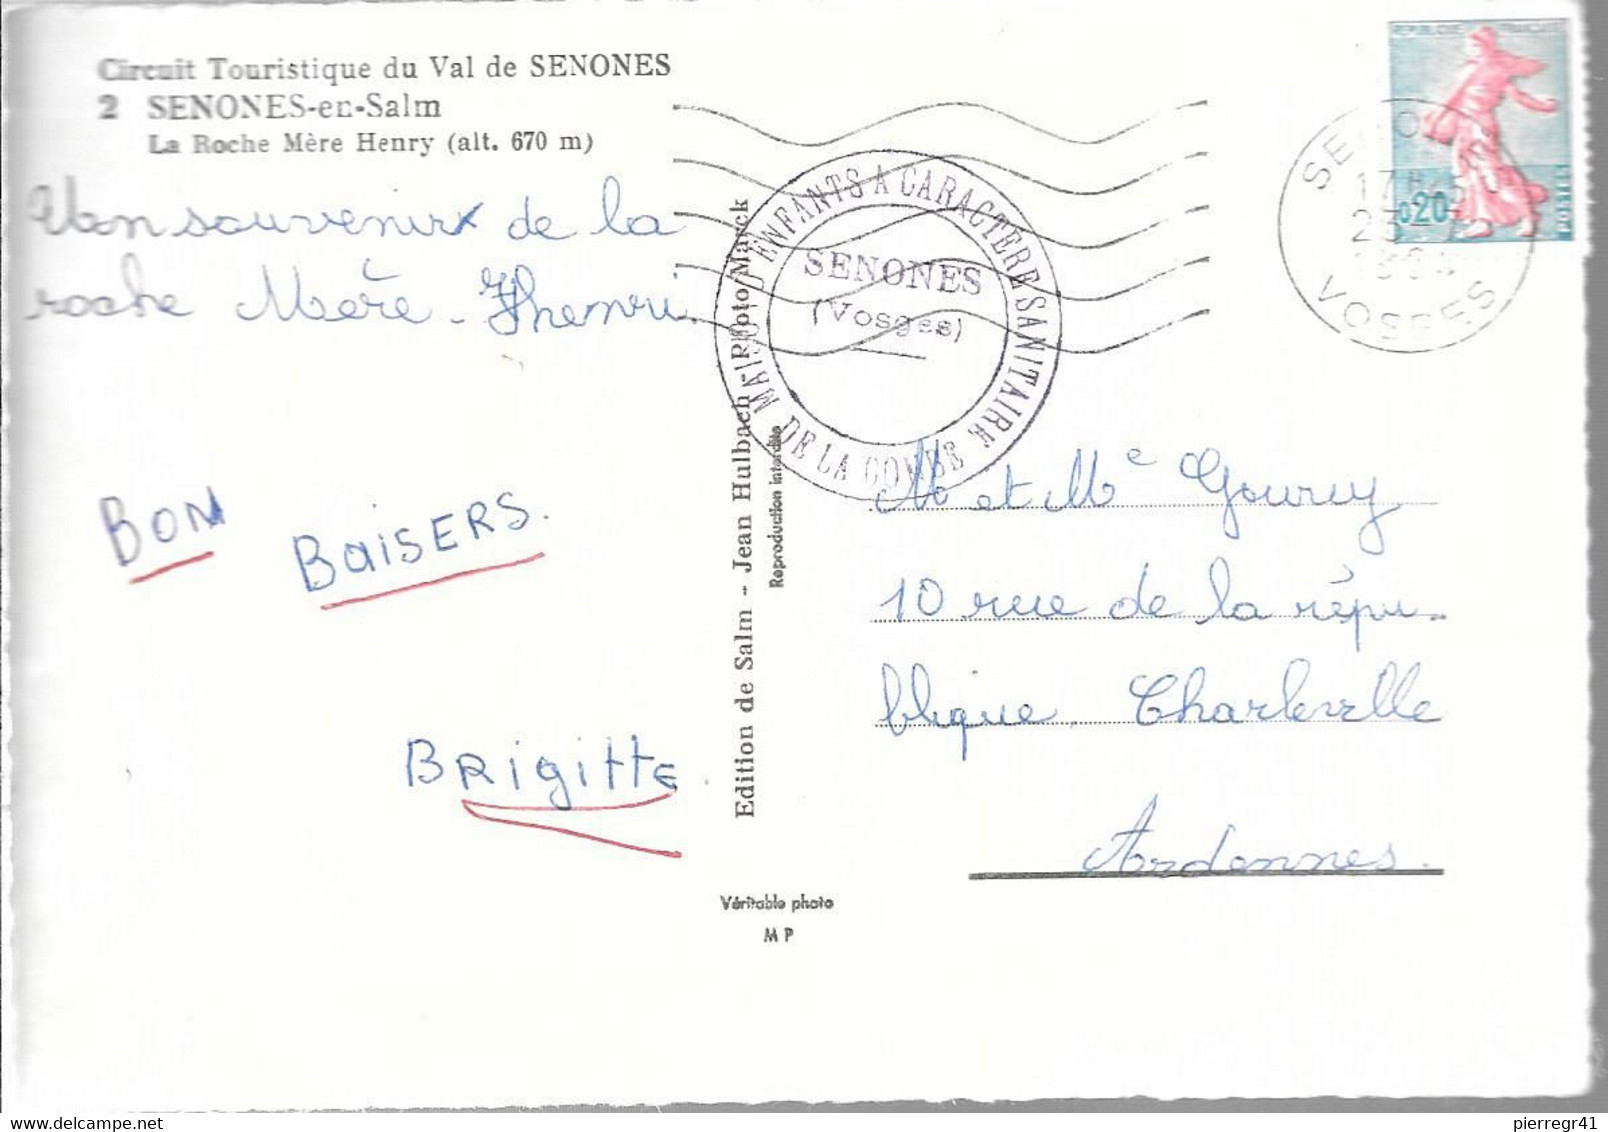 Circuit Touristique du Val de SENONES
2 SENONES-en-Salm
La Roche Mère Henry (alt. 670 m)
Un souvenir de la
roche Mère-Henri.
BON
BaiSERS.
BRigittE.
Edition de Salm - Jean Hulbach - Photo Marck
Reproduction interdite
Véritable photo
MP
MAISON D'ENFANTS A CARACTERE SANITAIRE
DE LA COMBE
SENONES
(Vosges)
SENO
17 H
23
VOSGES
0,20
POSTES
M et Me Gourcy
10 rue de la répu-
blique Charleville
Ardennes.
pierregr41